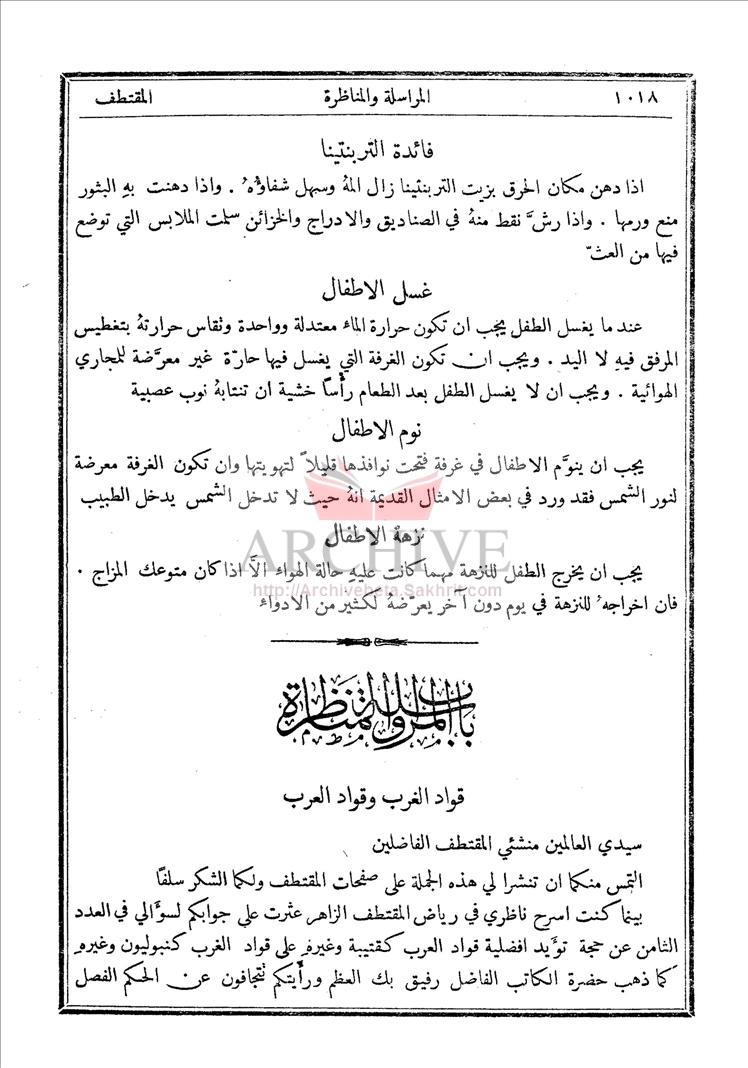 ١٠١٨ المراسلة والمناظرة المقتطف
فائدة التربنتينا
اذا دهن مكان الحرق بزيت التربنتينا زال المهُ وسهل شفاؤهُ . واذا دهنت بهِ البثور
منع ورمها . واذا رشَّ نقط منهُ في الصناديق والادراج والخزائن سلمت الملابس التي توضع
فيها من العثّ
غسل الاطفال
عند ما يغسل الطفل يجب ان تكون حرارة الماء معتدلة وواحدة وتقاس حرارتهُ بتغطيس
المرفق فيهِ لا اليد . ويجب ان تكون الغرفة التي يغسل فيها حارّة غير معرَّضة للمجاري
الهوائية . ويجب ان لا يغسل الطفل بعد الطعام رأساً خشية ان تنتابهُ نوب عصبية
نوم الاطفال
يجب ان ينوَّم الاطفال في غرفة فتحت نوافذها قليلاً لتهويتها وان تكون الغرفة معرضة
لنور الشمس فقد ورد في بعض الامثال القديمة انهُ حيث لا تدخل الشمس يدخل الطبيب
نزهة الاطفال
ARCHIVE
يجب ان يخرج الطفل للنزهة مهما كانت عليهِ حالة الهواء الاَّ اذا كان متوعك المزاج .
http://Archivebeta.Sakhrit.com
فان اخراجهُ للنزهة في يوم دون آخر يعرّضهُ لكثير من الادواء
باب المراسلة والمناظرة
قواد الغرب وقواد العرب
سيدي العالمين منشئي المقتطف الفاضلين
التمس منكما ان تنشرا لي هذه الجملة على صفحات المقتطف ولكما الشكر سلفًا
بينما كنت اسرح ناظري في رياض المقتطف الزاهر عثرت على جوابكم لسؤالي في العدد
الثامن عن حجة تؤيد افضلية قواد العرب كقتيبة وغيرهِ على قواد الغرب كنبوليون وغيرهِ
كما ذهب حضرة الكاتب الفاضل رفيق بك العظم ورأيتكم تتجافون عن الحكم الفصل